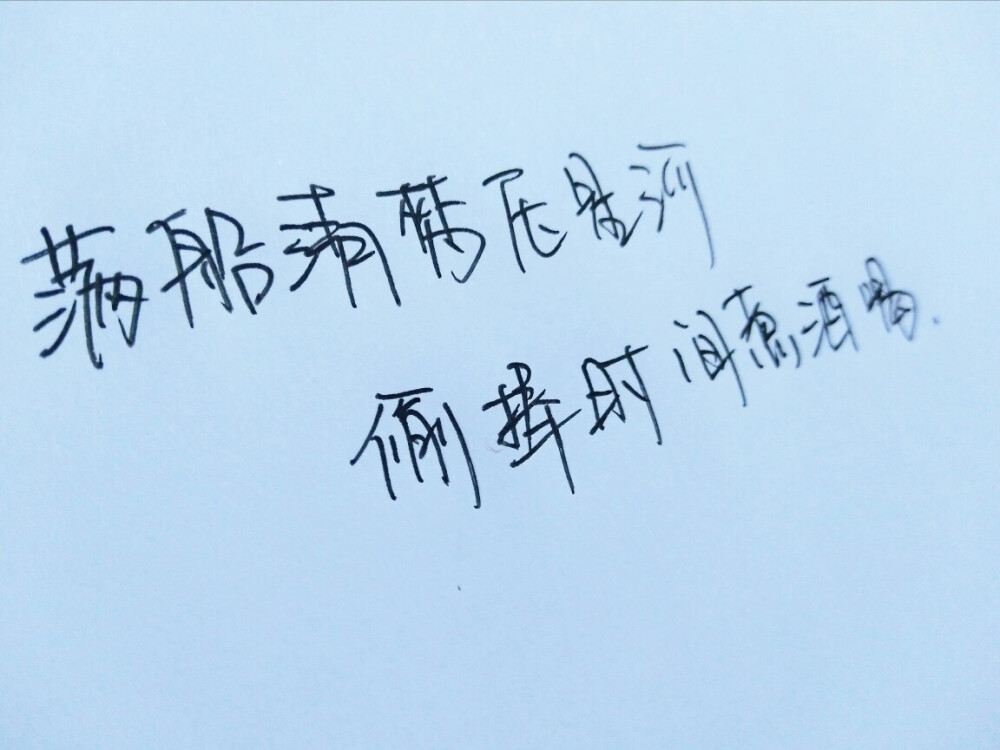 满船清梦压星河
偷择时间煮酒喝.